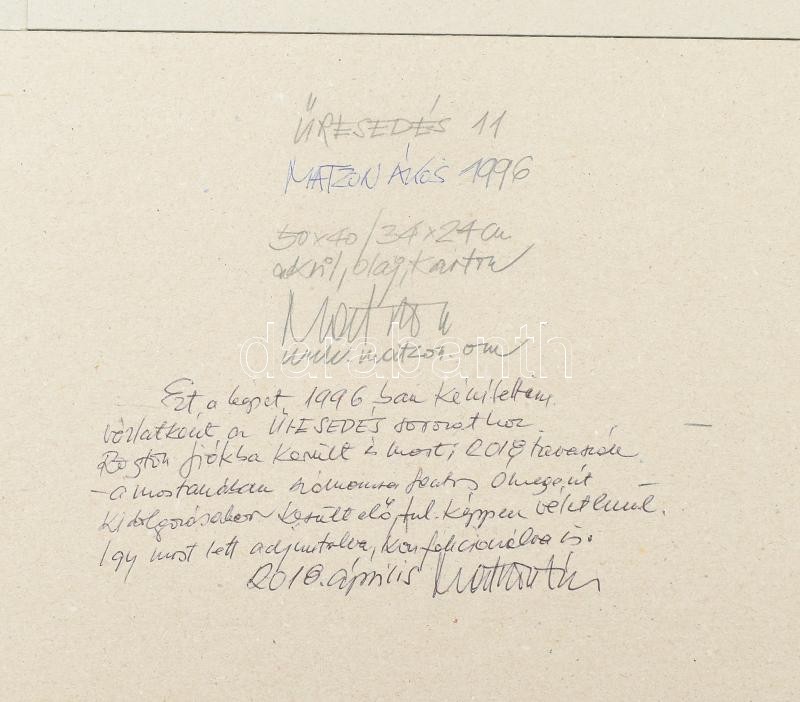 ÜRESEDÉS 11
MATZON ÁKOS 1996
50x40/34x24 cm
akril, olaj, karton
Matzon
www.matzon.com
darabanth
Ezt a képet 1996-ban készítettem
vázlatként, az ÜRESEDÉS sorozathoz.
Rögtön fiókba került és most, 2018 tavaszán
– a mostanában számomra fontos –
kidolgozásakor került elő, tul.képpen véletlenül.
Így most lett adjusztálva, konfekcionálva is.
2018. április Matzon Ákos